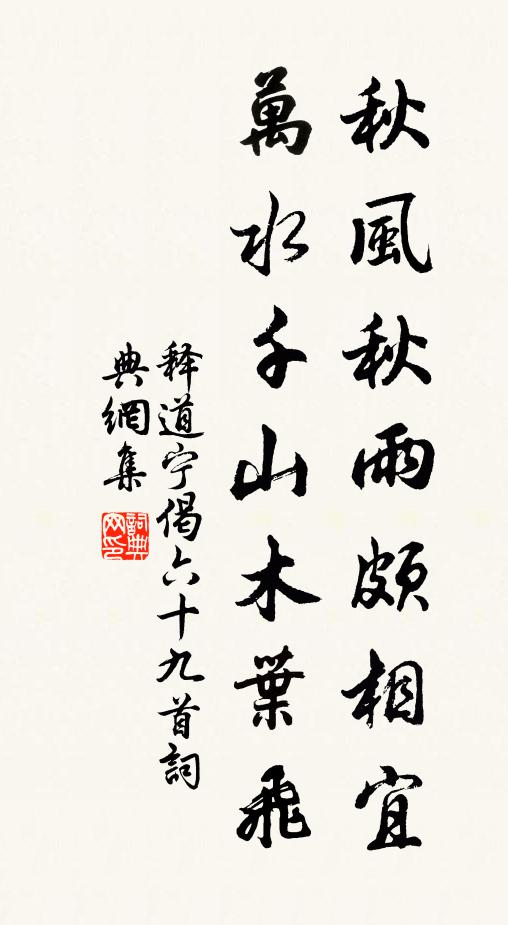 秋風秋雨頗相宜
萬水千山木葉飛
释道宁偈六十九首詞
典網集
詞典网印